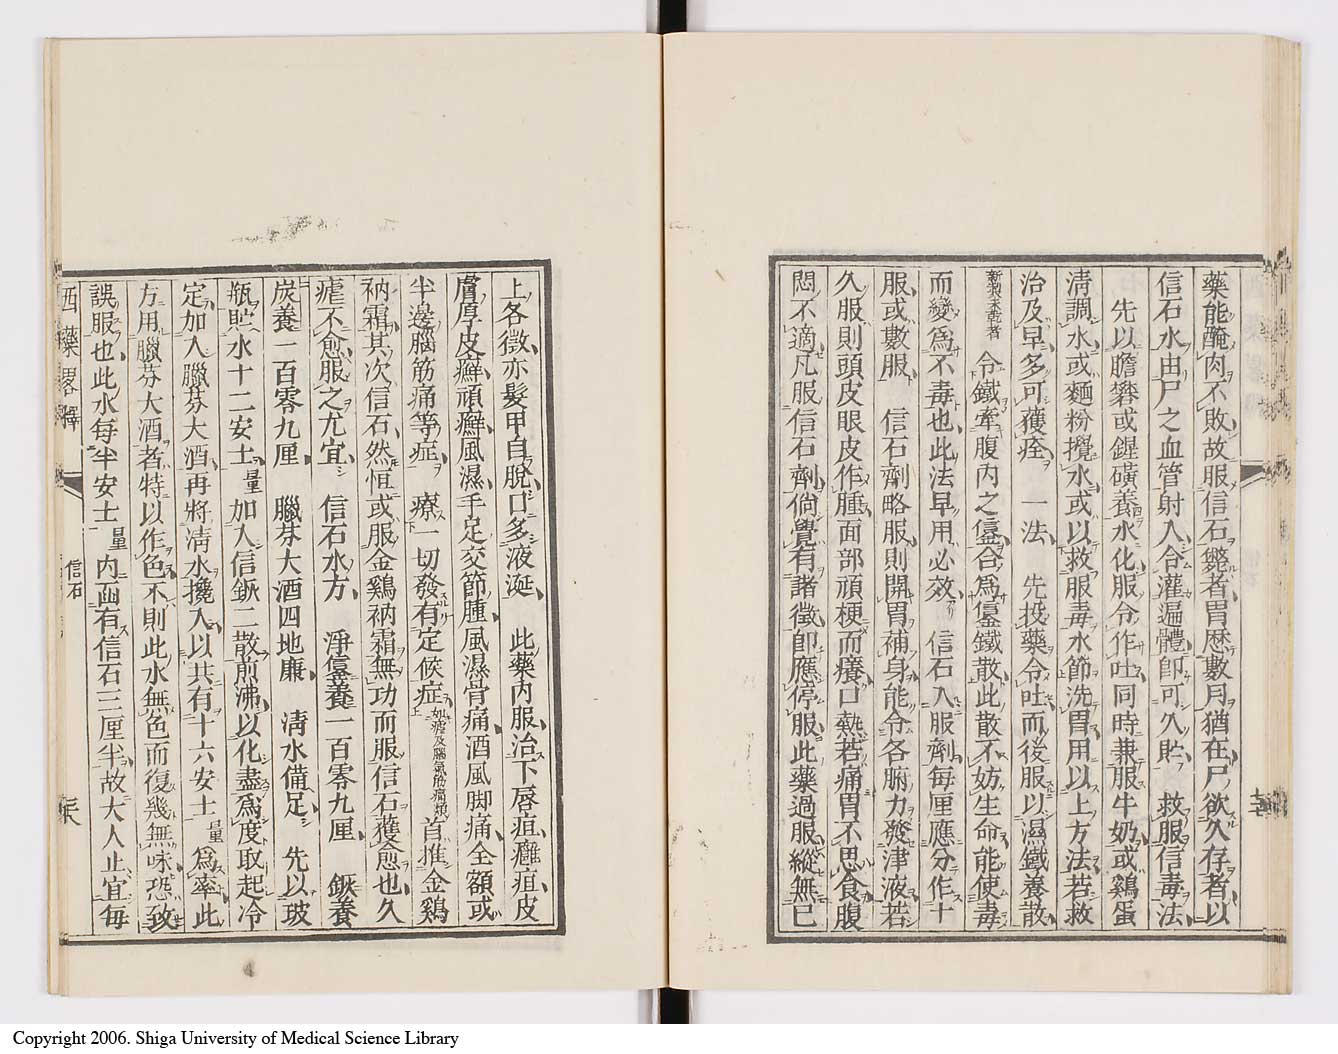 藥能醃肉不敗故服信石斃者胃歷數月猶在尸欲久存者以
信石水由尸之血管射入合灌遍體卽可久貯 救服信毒法
先以膽礬或鋅磺養水化服令作吐同時兼服牛奶或鷄蛋
淸調水或麵粉攪水或以救服毒水節洗胃用以上方法若救
治及早多可獲痊 一法 先投藥令吐而後服以濕鐵養散
新製未乾者 令鐵牽腹內之𨭎合為𨭎鐵散此散不妨生命能使毒
而變為不毒也此法早用必效 信石入服劑每厘應分作十
服或數服 信石劑略服則開胃補身能令各腑力發津液若
久服則頭皮眼皮作腫面部頑梗而癢口熱若痛胃不思食腹
悶不適凡服信石劑倘覺有諸徵卽應停服此藥過服縱無已
上各徵亦髮甲自脫口多液涎 此藥內服治下唇疽癰疽皮
膚厚皮癬頑癬風濕手足交節腫風濕骨痛酒風脚痛全額或
半邊腦筋痛等症 療一切發有定候症 如瘧及腦氣筋痛類 首推金鷄
衲霜其次信石然恒或服金鷄衲霜無功而服信石獲愈也久
瘧不愈服之尤宜 信石水方 淨𨭎養一百零九厘 鉀養
炭養一百零九厘 臘芬大酒四地廉 淸水備足 先以玻
瓶貯水十二安士量 加入信鉀二散煎沸以化盡為度取起冷
定加入臘芬大酒再將淸水攙入以共有十六安士量 為率此
方用臘芬大酒者特以作色不則此水無色而復幾無味恐致
誤服也此水每半安士量 內函有信石三厘半故大人止宜每
西藥畧釋 信石